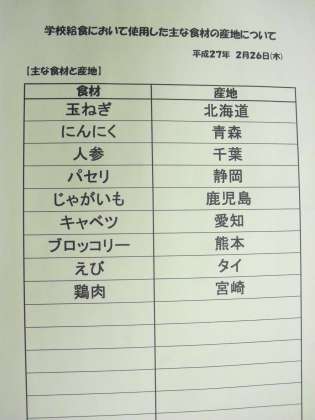 学校給食において使用した主な食材の産地について
平成27年 2月26日(木)
【主な食材と産地】
食材 産地
玉ねぎ 北海道
にんにく 青森
人参 千葉
パセリ 静岡
じゃがいも 鹿児島
キャベツ 愛知
ブロッコリー 熊本
えび タイ
鶏肉 宮崎